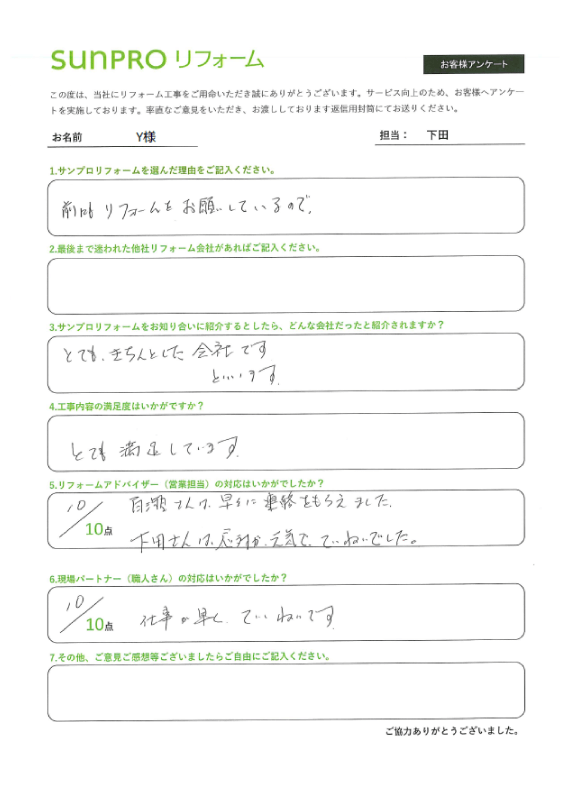 sunPRO リフォーム
お客様アンケート
この度は、当社にリフォーム工事をご用命いただき誠にありがとうございます。サービス向上のため、お客様へアンケー
トを実施しております。率直なご意見をいただき、お渡ししております返信用封筒にてお送りください。
お名前 Y様 担当： 下田
1.サンプロリフォームを選んだ理由をご記入ください。
前回も リフォームを お願いしているので、
2.最後まで迷われた他社リフォーム会社があればご記入ください。
3.サンプロリフォームをお知り合いに紹介するとしたら、どんな会社だったと紹介されますか？
とても、きちんとした 会社です
といいます。
4.工事内容の満足度はいかがですか？
とても 満足しています。
5.リフォームアドバイザー（営業担当）の対応はいかがでしたか？
さんは、早々に 連絡をもらえました。
10/10点
下田さんは、元気で、ていねいでした。
6.現場パートナー（職人さん）の対応はいかがでしたか？
10/10点 仕事が早く、ていねいです。
7.その他、ご意見ご感想等ございましたらご自由にご記入ください。
ご協力ありがとうございました。